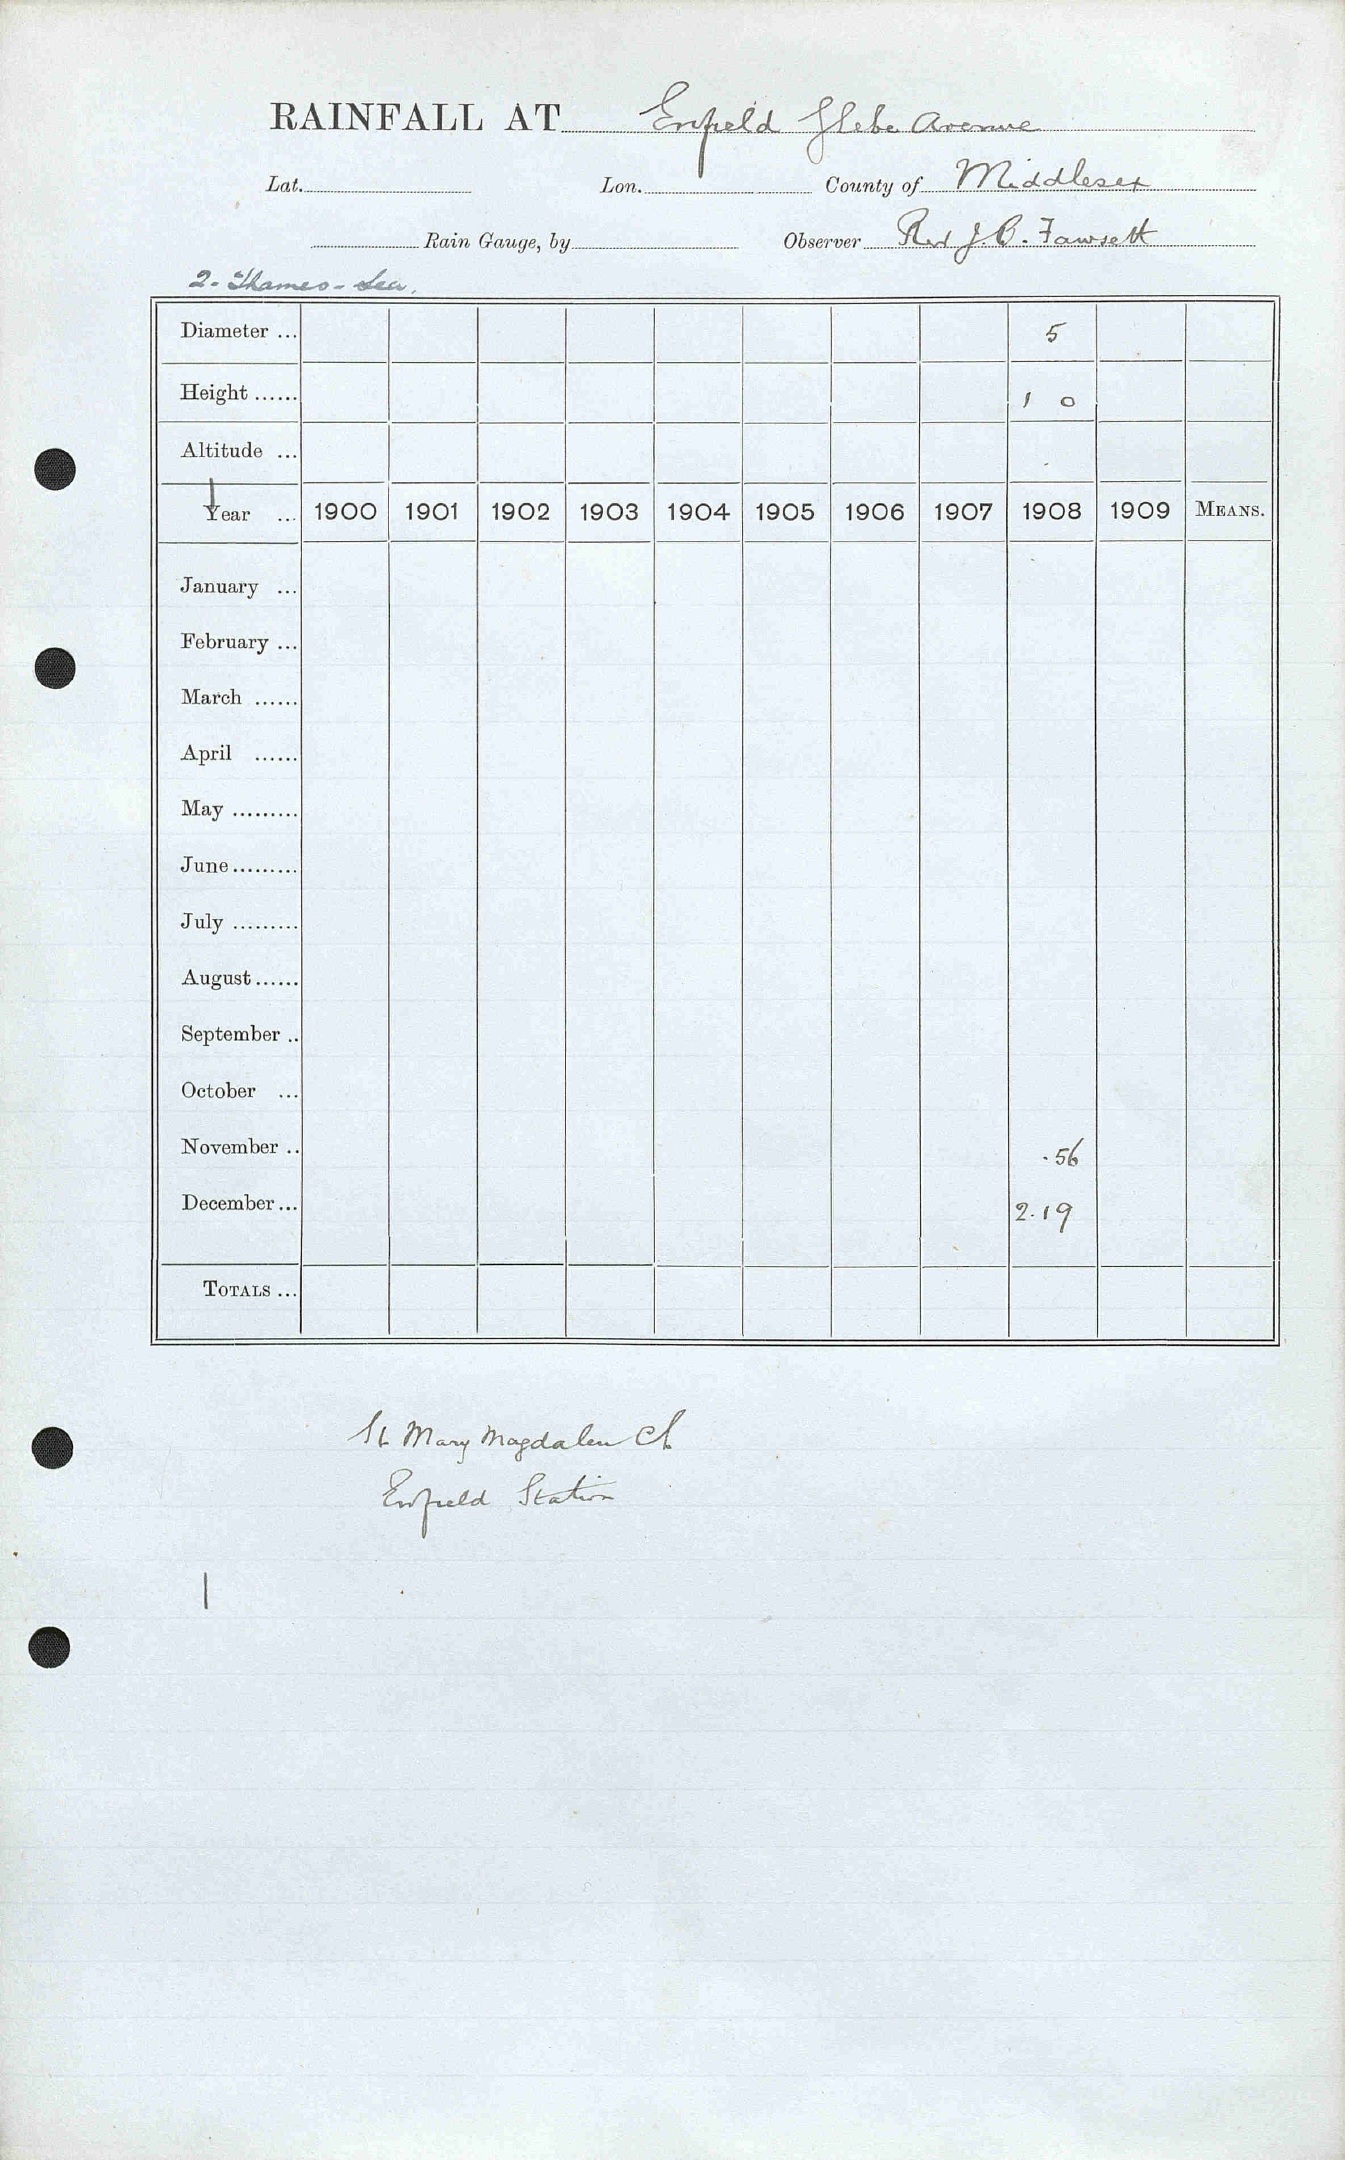 RAINFALL AT Enfield Glebe Avenue
Lat. Lon. County of Middlesex
Rain Gauge, by Observer Rev J. B. Fawsett
2 - Thames - Lea.
Diameter ... 5
Height ...... 1 0
Altitude ...
Year ... 1900 1901 1902 1903 1904 1905 1906 1907 1908 1909 MEANS.
January ...
February ...
March ......
April ......
May .........
June .........
July .........
August ......
September ..
October ...
November .. .56
December ... 2.19
TOTALS ...
St Mary Magdalen Ch
Enfield Station